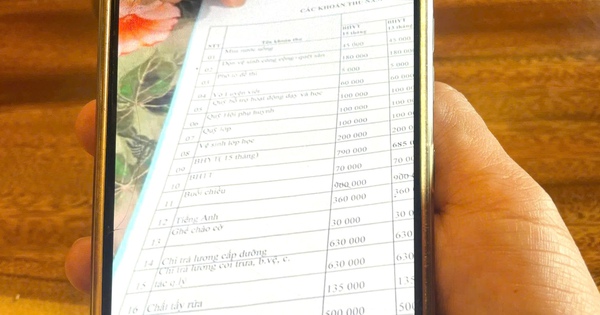 CÁC KHOẢN THU
STT Tên khoản thu BHYT 15 tháng BHYT
01 Mua nước uống 45 000 45 000
02 Dọn vệ sinh công cộng 180 000 180 000
03 Phí in đề thi 5 000 5 000
04 Vở Luyện viết 60 000 60 000
05 Quỹ hỗ trợ hoạt động dạy và học 100 000 100 000
06 Quỹ Hội phụ huynh 100 000 100 000
07 Quỹ lớp 100 000 100 000
08 Vệ sinh lớp học 200 000 200 000
09 BHYT( 15 tháng) 790 000 685 0
10 BHTT 70 000 70 0
11 Buổi chiều 900 000 900
12 Tiếng Anh 360 000 360
13 Ghế chào cờ 30 000 30 0
14 Chi trả lương cấp dưỡng 630 000 630
15 Chi trả lương coi trưa, b.vệ, c.
tác q.lý 630 000 630
16 Chất tẩy rửa 135 000 135
500 000 500